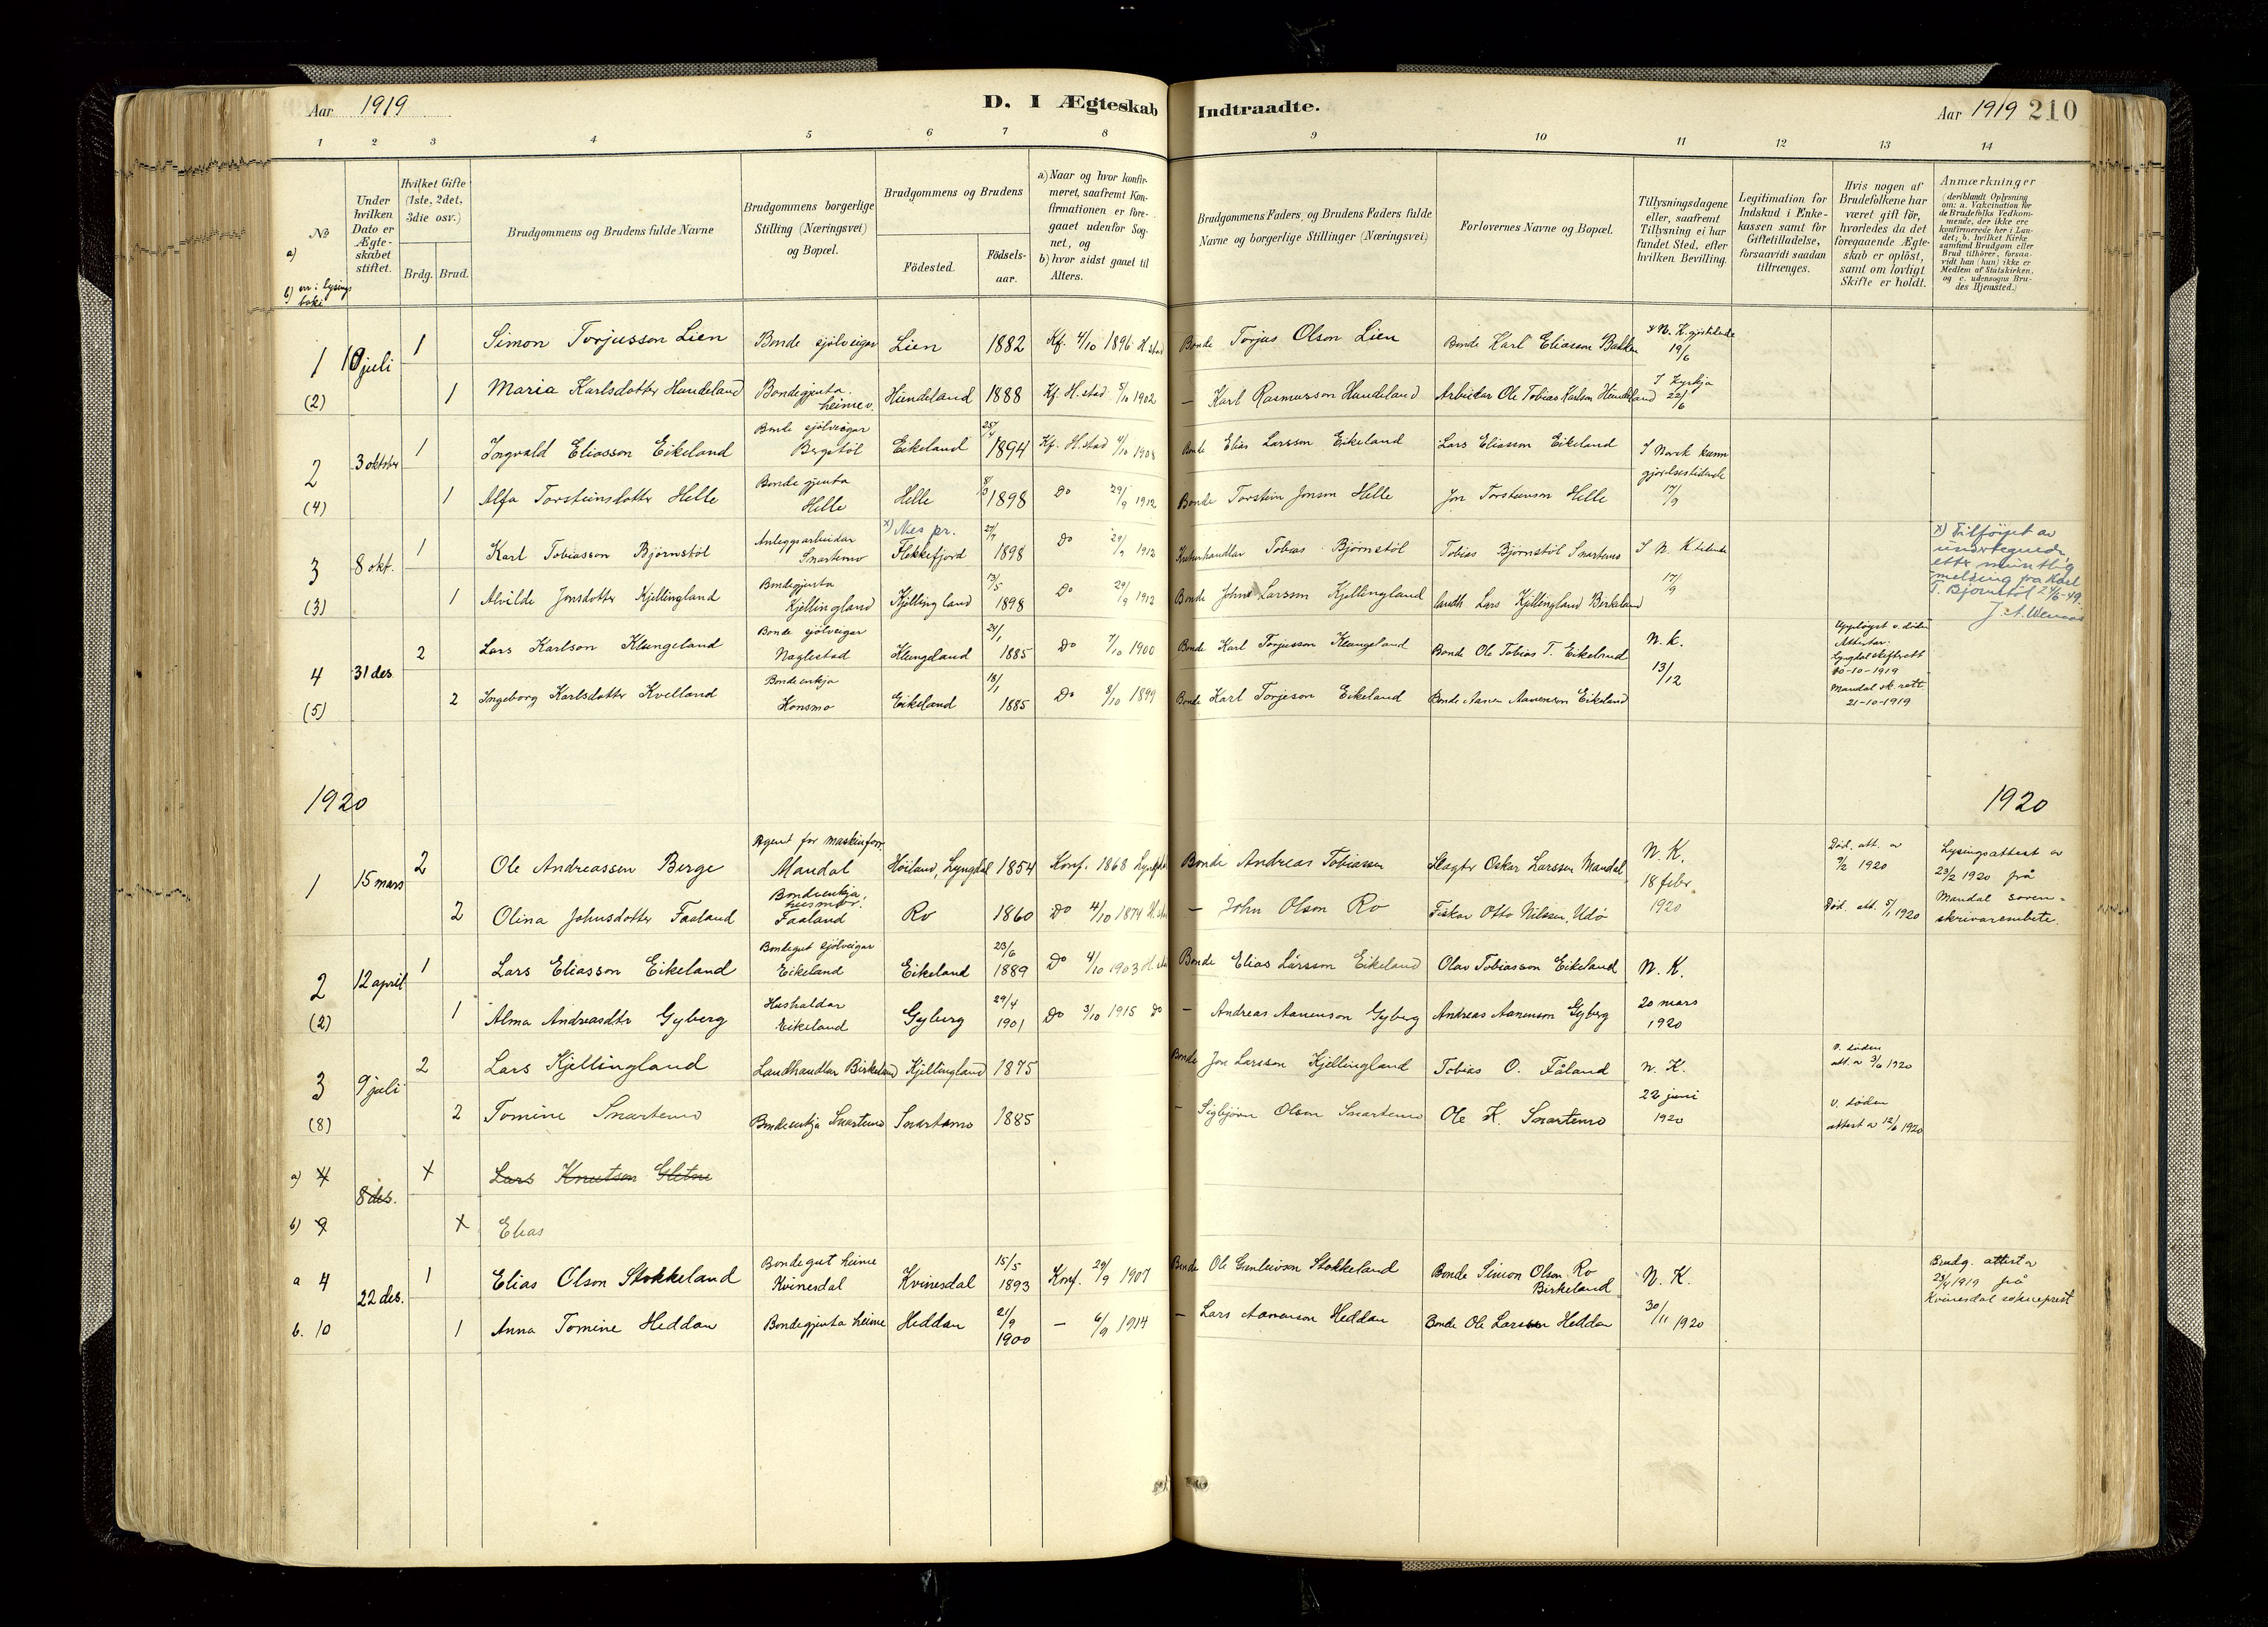 Aar 1919
D. I Ægteskab Indtraadte.
Aar 1919 210
1 2 3 4 5 6 7 8 9 10 11 12 13 14
№
a)
b) nr i lysings boki
Under hvilken Dato er Ægte-skabet stiftet.
Hvilket Gifte (1ste, 2det, 3die osv.)
Brdg. Brud.
Brudgommens og Brudens fulde Navne
Brudgommens borgerlige Stilling (Næringsvei) og Bopæl.
Brudgommens og Brudens
Födested. Födsels-aar.
a) Naar og hvor konfir-meret, saafremt Kon-firmationen er fore-gaaet udenfor Sog-net, og
b) hvor sidst gaaet til Alters.
Brudgommens Faders, og Brudens Faders fulde Navne og borgerlige Stillinger (Næringsvei)
Forlovernes Navne og Bopæl.
Tillysningsdagene eller, saafremt Tillysning ei har fundet Sted, efter hvilken Bevilling.
Legitimation for Indskud i Enke-kassen samt for Giftetilladelse, forsaavidt saadan tiltrænges.
Hvis nogen af Brudefolkene har været gift för, hvorledes da det foregaaende Ægte-skab er oplöst, samt om lovligt Skifte er holdt.
Anmærkninger
(deriblandt Oplysning om: a. Vakcination for de Brudefolks Vedkom-mende, der ikke ere konfirmerede her i Lan-det; b. hvilket Kirke-samfund Brudgom eller Brud tilhörer, forsaa-vidt han (hun) ikke er Medlem af Statskirken, og c. udensogns Bru-des Hjemsted.)
1 10 juli 1 Simon Torjusson Lien Bonde sjølveigar Lien 1882 Kf. 4/10 1896 H.stad Bonde Torjus Olson Lien Bonde Karl Eliasson Bakken N. K. gjs.tidende 19/6
(2) 1 Maria Karlsdotter Hundeland Bondegjenta heime v. Hundeland 1888 Kf. H.stad 5/10 1902 — Karl Rasmusson Hundeland Arbeidar Ole Tobias Karlson Hundeland I kyrkja 22/6
2 3 oktober 1 Ingvald Eliasson Eikeland Bonde sjölveigar Bergstöl Eikeland 25/4 1894 Kf. H.stad 4/10 1908 Bonde Elias Larsson Eikeland Lars Eliasson Eikeland I Norsk kunngjörelsestidende
(4) 1 Alfa Torsteinsdotter Helle Bonde gjenta Helle Helle 1898 Do 29/9 1912 Bonde Torstein Jonson Helle Jon Torsteinson Helle 17/9
3 8 okt. 1 Karl Tobiasson Bjørnstöl Anleggsarbeidar Snartemo x) Nes pr. Flekkefjord 1898 Do 29/9 1912 Tobias Bjørnstöl Tobias Bjørnstöl Snartemo I N. K tidende
x) Tilföjet av undertegnede, etter muntlig melding fra Karl T. Bjørnstöl 24/6-49.
(3) 1 Alvilde Jonsdotter Kjellingland Bondegjenta Kjellingland Kjellingland 13/5 1898 Do 29/9 1912 Bonde John Larsson Kjellingland landh. Lars Kjellingland Birkeland 17/9
4 31 des. 2 Lars Karlson Klungeland Bonde sjölveigar Naglestad Klungeland 24/1 1885 Do 7/10 1900 Bonde Karl Torjusson Klungeland Bonde Ole Tobias T. Eikelund N. K. Upplöyst v. döden Attestar: Lyngdal skifterett 20-10-1919
(5) 2 Ingeborg Karlsdotter Kvelland Bondeenkja Konsmo Eikeland 18/1 1885 Do 8/10 1899 Bonde Karl Torjeson Eikeland Bonde Aanen Aanenson Eikeland 13/12 Mandal sk. rett 21-10-1919
1920 1920
1 15 mars 2 Ole Andreassen Berge Agent for maskinforr. Mandal Höiland, Lyngdal 1854 Konf. 1868 Bonde Andreas Tobiassen Slagter Oskar Larssen Mandal N. K. Död. att. av 9/2 1920 Lysingsattest av 23/2 1920 frå Mandal soren-skrivarembete.
2 Olina Johnsdotter Faaland Bondeenkja, husmor. Faaland Ro 1860 Do 4/10 1874 H.stad — John Olson Ro Fiskar Otto Nilssen, Udö 18 febr. 1920 Död. att. 5/1 1920
2 12 april 1 Lars Eliasson Eikeland Bondegut sjölveigar Eikeland Eikeland 23/6 1889 Do 4/10 1903 H.stad Bonde Elias Larsson Eikeland Olav Tobiasson Eikeland N. K.
(2) 1 Alma Andreasdtr Gyberg Hushaldar Eikeland Gyberg 29/4 1901 Do 3/10 1915 Do — Andreas Aanenson Gyberg Andreas Aanenson Gyberg 20 mars 1920
3 9 juli 2 Lars Kjellingland Landhandlar Birkeland Kjellingland 1875 Bonde Jon Larsson Kjellingland Tobias O. Fåland N. K. v. döden att. av 3/6 1920
(8) 2 Tomine Snartemo Bondeenkja Snartemo Snartemo 1885 — Sigbjörn Olson Snartemo Ole K. Snartemo 22 juni 1920 v. döden attest av 12/6 1920
a) 4 8 des. + Lars Knutson Gletne
b) 9 + Elias
a 4 22 des. 1 Elias Olson Stokkeland Bondegut heime Kvinesdal Kvinesdal 15/5 1893 Konf. 29/9 1907 Bonde Ole Gunleivson Stokkeland Bonde Simon Olson Ro Birkeland N. K. Brudg. attest av 23/4 1919 frå Kvinesdal sokneprest
b. 10 1 Anna Tomine Heddan Bondegjenta heime Heddan 21/9 1900 — 6/9 1914 — Lars Aanenson Heddan Bonde Ole Larsson Heddan 30/11 1920